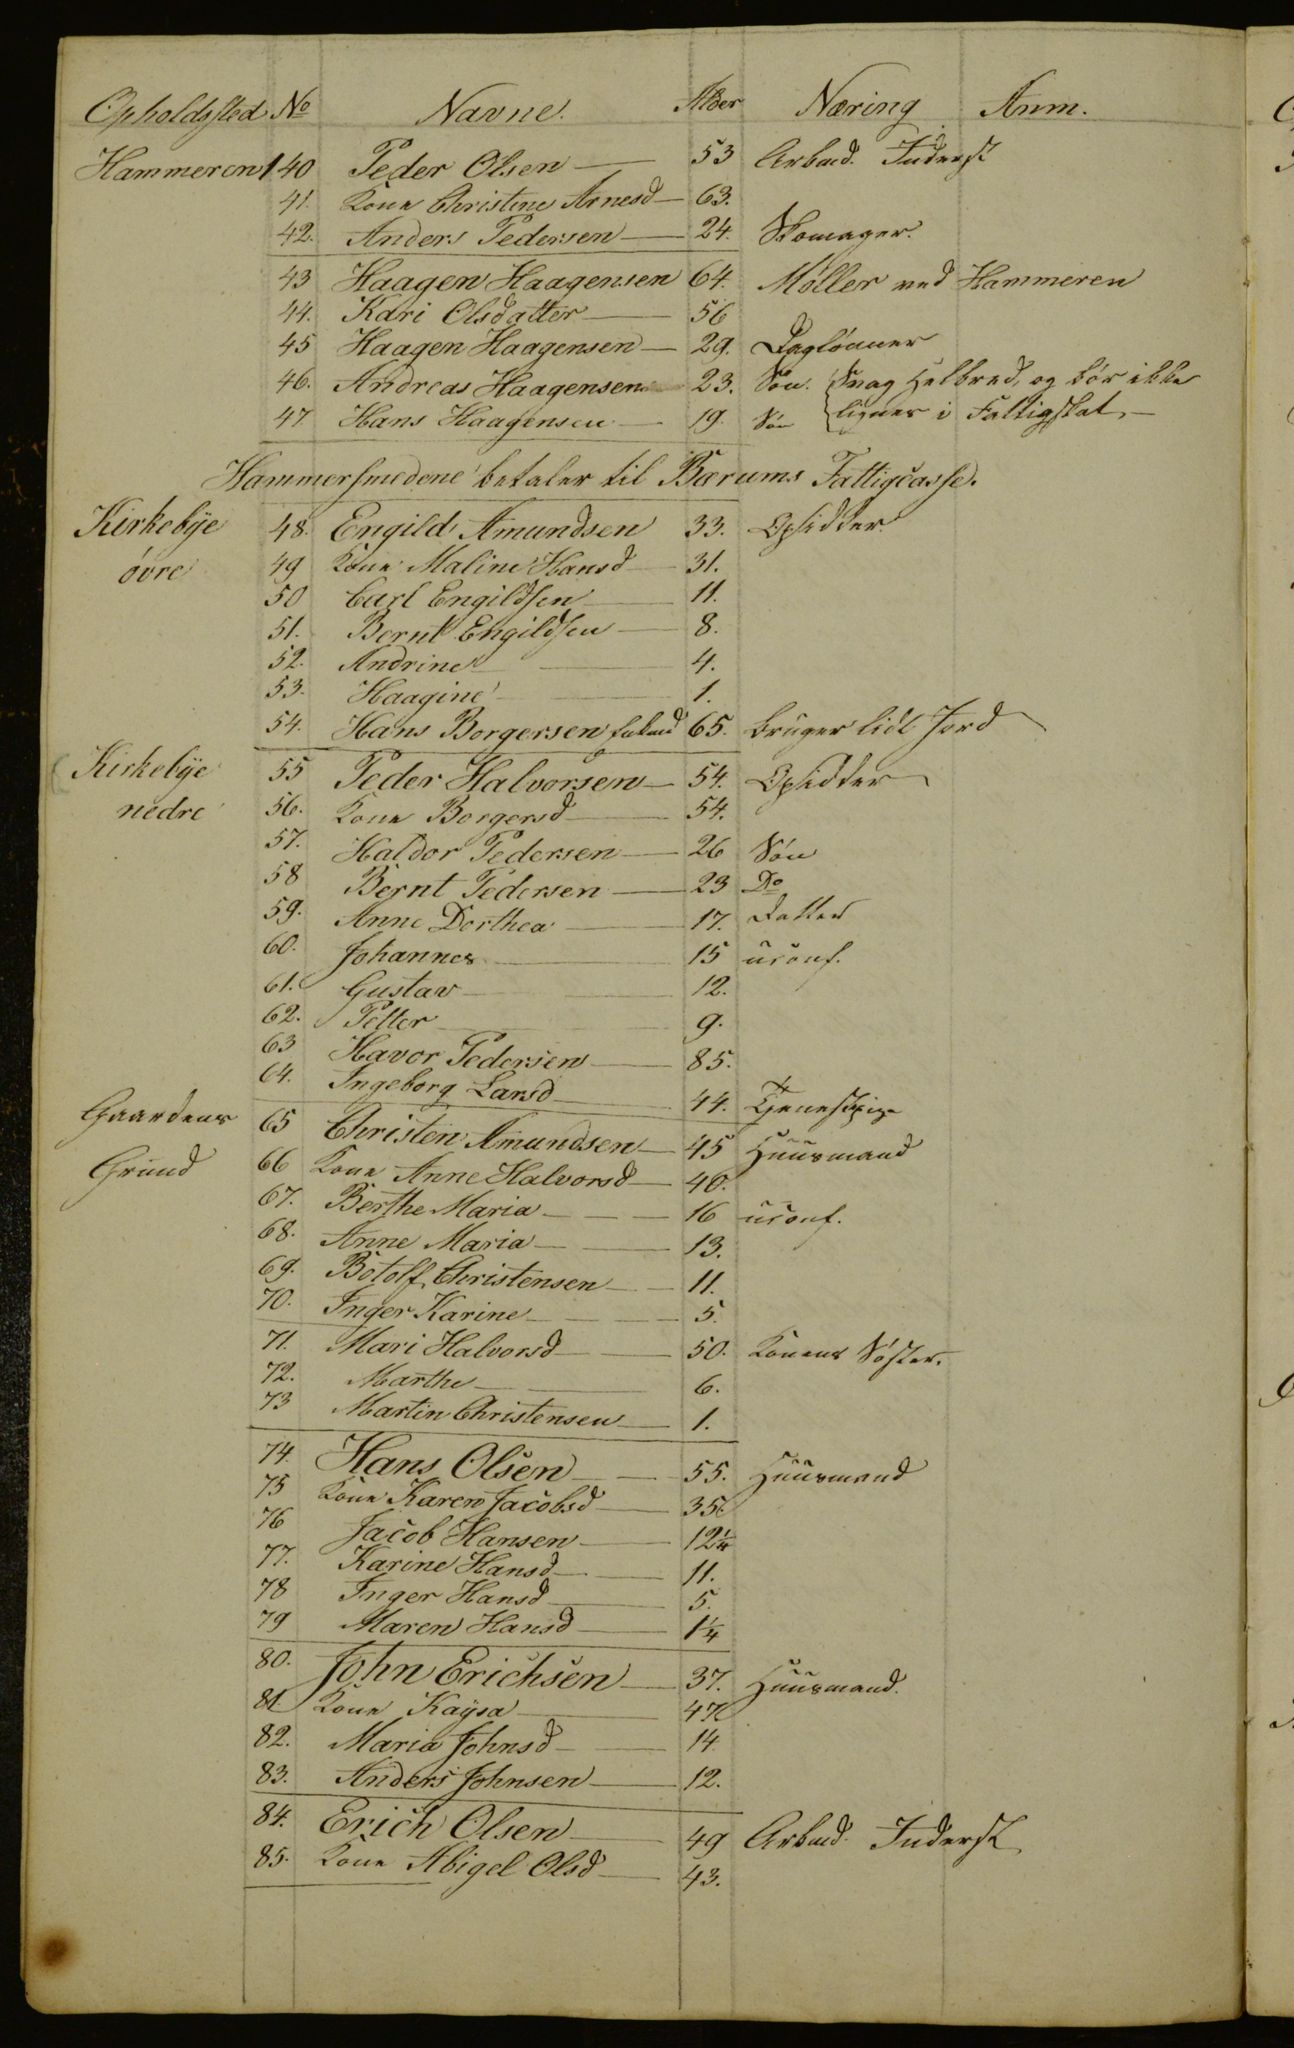 Opholdssted No Navne. Alder Næring Anm.
Hammeren 140 Peder Olsen 53 Arbmd. Inderst
41. Kone Christine Arnesd 63.
42. Anders Pedersen 24. Skomager.
43 Haagen Haagensen 64. Møller ved Hammeren
44. Kari Olsdatter 56
45 Haagen Haagensen 29. Daglönner
46. Andreas Haagensen 23. Sön. Svag Helbred, og bör ikke
47 Hans Haagensen 19. Sön lignes i Fattigskat,
Hammersmedene betaler til Bærums Fattigcasse.
Kirkebÿe 48. Engild Amundsen 33. Opsidder
óvre 49 Kone Maline Hansd 31.
50 Carl Engildsen 11.
51. Bernt Engildsen 8.
52. Andrine 4.
53. Haagine 1.
54. Hans Borgersen 65. bruger lidt Jord
Kirkebÿe 55 Peder Halvorsen 54. Opsidder
nedre 56. Kone Borgersd 54.
57. Haldor Pedersen 26 Sön
58 Bernt Pedersen 23 Do
59. Anne Dorthea 17. Datter
60. Johannes 15 uconf.
61. Gustav 12.
62. Petter 9.
63 Havor Pedersen 85.
64. Ingeborg Larsd 44. Tjenestpige
Gaardens 65 Christen Amundsen 45 Huusmand
Grund 66 Kone Anne Halvorsd 40.
67. Berthe Maria 16 uconf.
68. Anne Maria 13.
69. Botolf Christensen 11.
70. Inger Karine 5.
71. Mari Halvorsd 50. Konens Söster.
72. Marthe 6.
73 Martin Christensen 1.
74. Hans Olsen 55. Huusmand
75 Kone Karen Jacobsd 35
76 Jacob Hansen 12¼
77. Karine Hansd 11.
78 Inger Hansd 5.
79 Maren Hansd 1¼
80. John Erichsen 37. Huusmand.
81 Kone Kaÿsa 47
82. Maria Johnsd 14
83. Anders Johnsen 12.
84. Erich Olsen 49 Arbmd. Inderst
85. Kone Abigel Olsd 43.